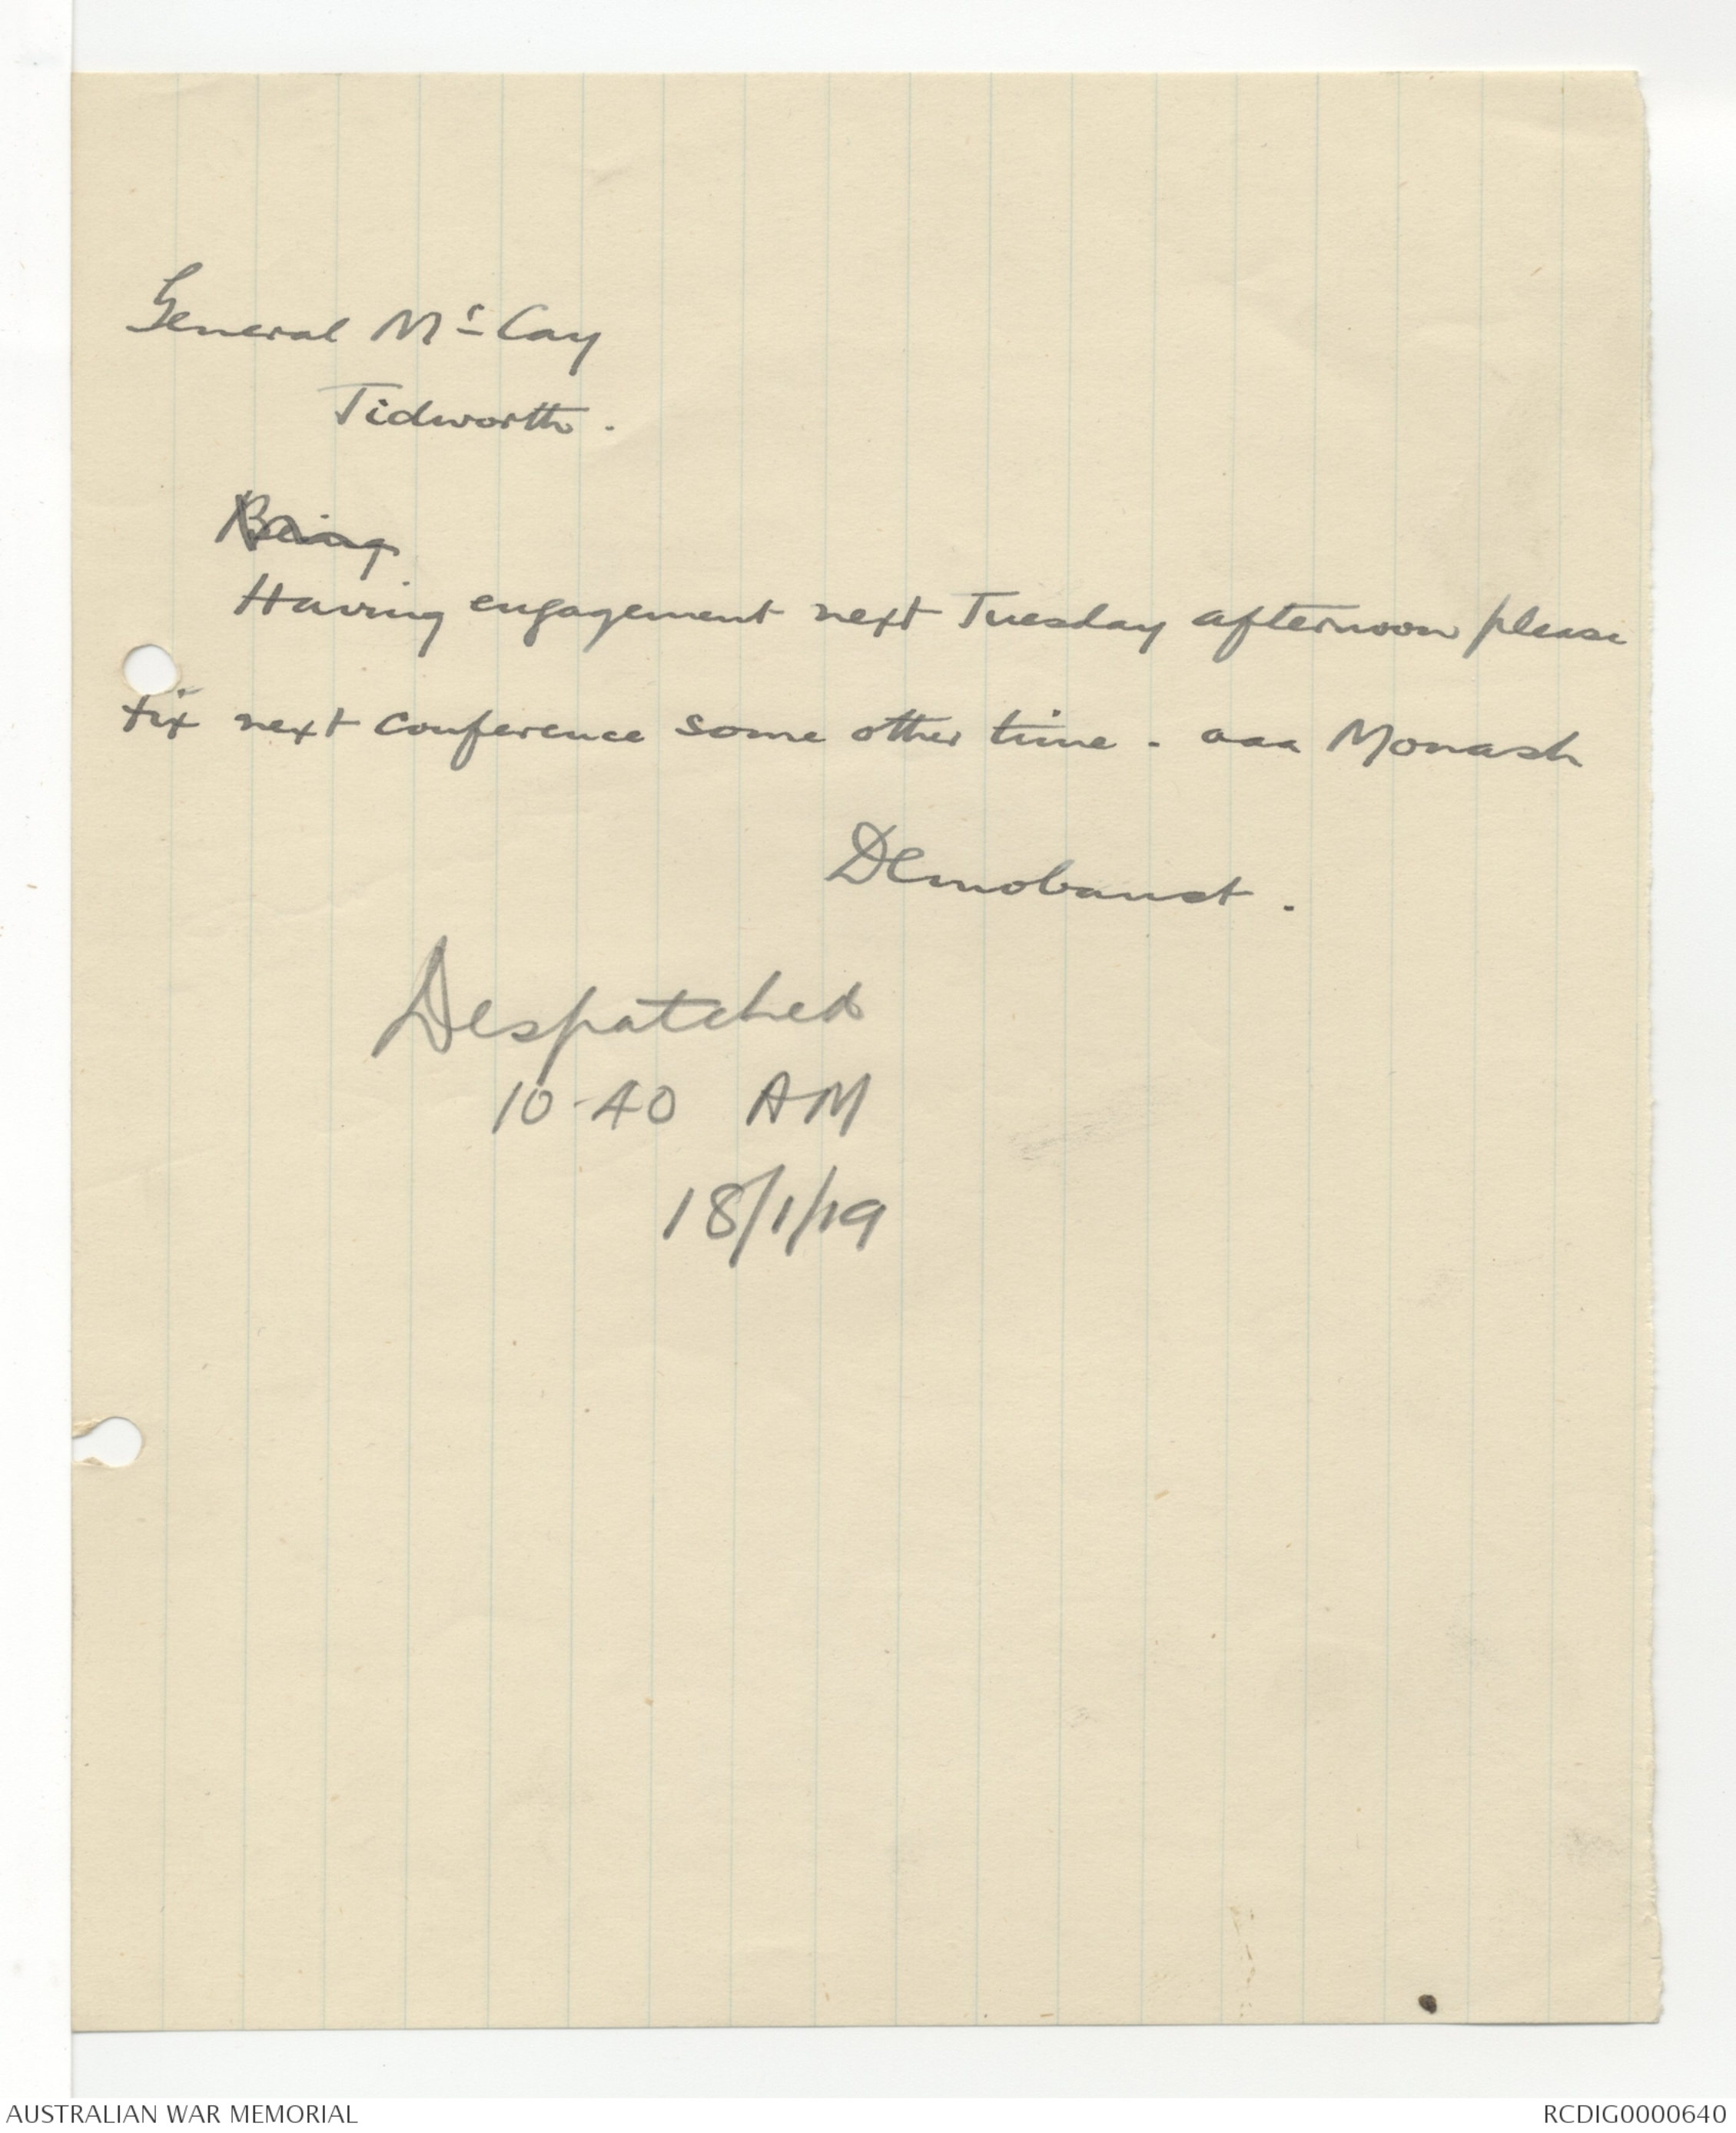 General Mc Cay
Tidworth.
Being
Having engagement next Tuesday afternoon please
fix next conference some other time. aaa Monash
Demobaust.
Despatched
10-40 AM
18/1/19
AUSTRALIAN WAR MEMORIAL
RCDIG0000640